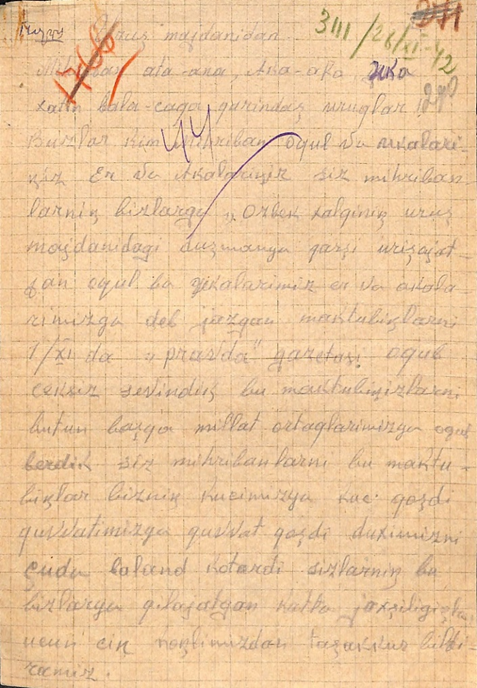 3111/26/XI-42
Urus majdanidan.
Mihriban ata-ana, Aka-aka, uka
xatn bala-caqa qarindaş uruglar!
44
Bizlar kim mihriban oqul va ukalari-
ŋiz Er va Akalariŋiz siz mihriban
larniŋ bizlarga „Ozbek xalqiniŋ urus
majdanidagi duşmanga qarşi urişajat-
kan oqul va ukalarimiz er va akala
rimizga deb jazgan maktubiŋlarni
1/XI da „pravda" gazetasi oqub
ceksiz sevindik bu maktubiŋizlarni
butun başqa millat ortaqlarimizga oqub
berdik siz mihribanlarni bu maktu-
biŋlar bizniŋ kucimizga kuc qoşdi
quvvatimizga quvvat qoşdi duximizni
cuda baland kotardi sizlarniŋ bu
bizlarga qilajatgan katta jaxşiligiŋlar
ucun ciŋ koŋlimizdan taşakkur bildi-
ramiz.